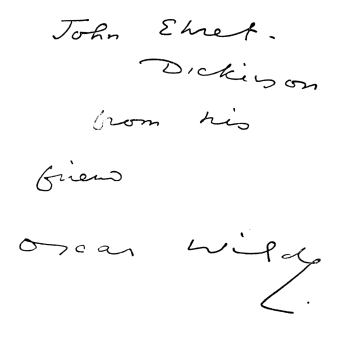 John Ehret-
Dickinson
from his
friend
Oscar Wilde